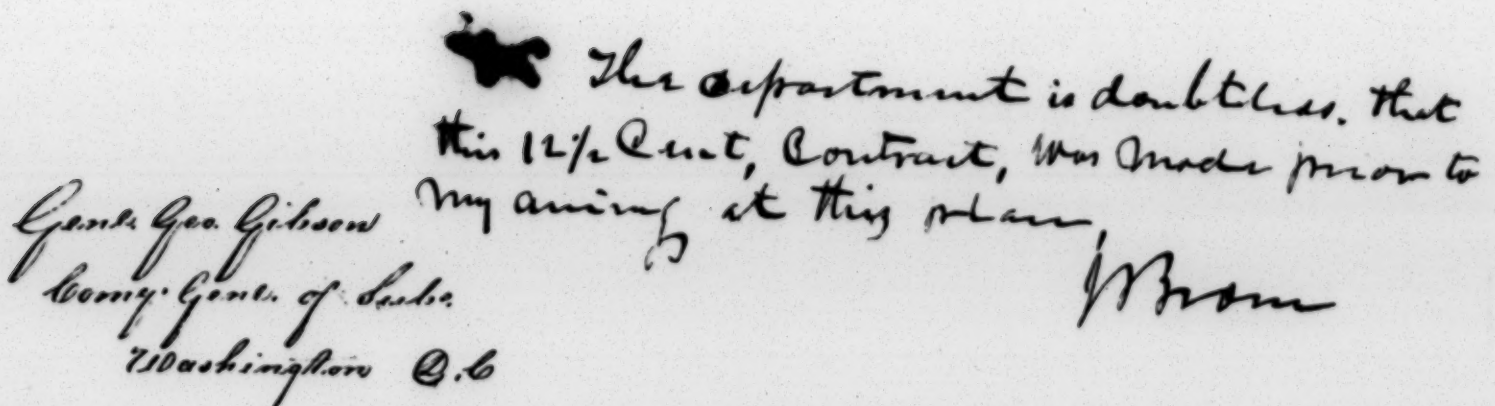 The department is doubtless. that
this 12½ Cent, Contract, was made prior to
my arriving at this place,
JBrown
Genl. Geo. Gibson
Comy. Genl. of Subs.
Washington D.C